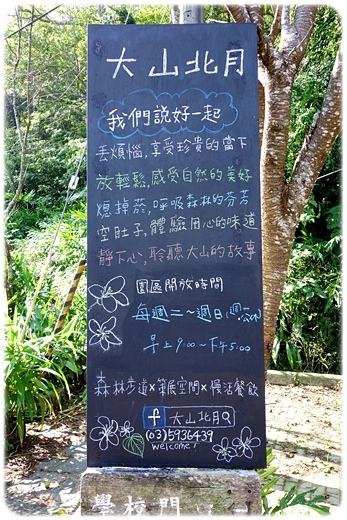 大山北月
我們說好一起
丟煩惱,享受珍貴的當下
放輕鬆,感受自然的美好
熄掉菸,呼吸森林的芬芳
空肚子,體驗用心的味道
靜下心,聆聽大山的故事
園區開放時間
每週二～週日(週一公休)
早上9:00～下午5:00
森林步道×策展空間×慢活餐飲
f 大山北月
(03)5936439
welcome!
學校門